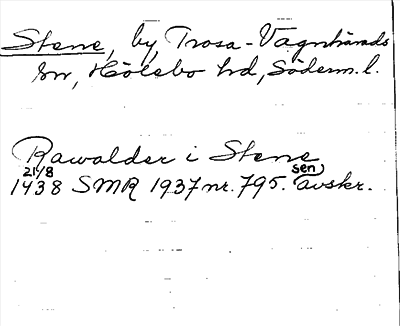 Stene, by, Trosa-Vagnhärads
sn, Hölebo hd, Söderm. l.
Rawalder i Stene
21/8 sen
1438 SMR 1937 nr. 795. avskr.